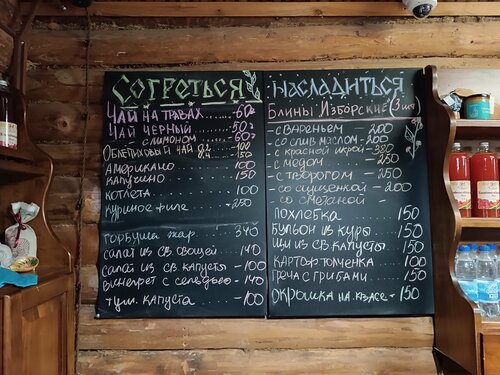 Согреться
Чай на травах - 60
Чай черный - 50
с лимоном - 60
Облепиховый чай 0,2 - 100
0,4 - 150
Американо 100
Капучино 150
Котлета 100
Куриное филе - 250
Горбуша жар. 340
Салат из св. овощей - 140
Салат из св. капусты - 100
Винегрет с сельдью - 140
Туш. капуста - 100
Насладиться
Блины Изборские (3 шт)
- с вареньем - 200
- со слив. маслом - 200
- с красной икрой - 380
- с медом - 250
- с творогом - 250
- со сгущенкой - 200
- со сметаной
Похлебка 150
Бульон из куры 150
Щи из св. капусты 150
Картоф. толченка 100
Греча с грибами 150
Окрошка на квасе - 150